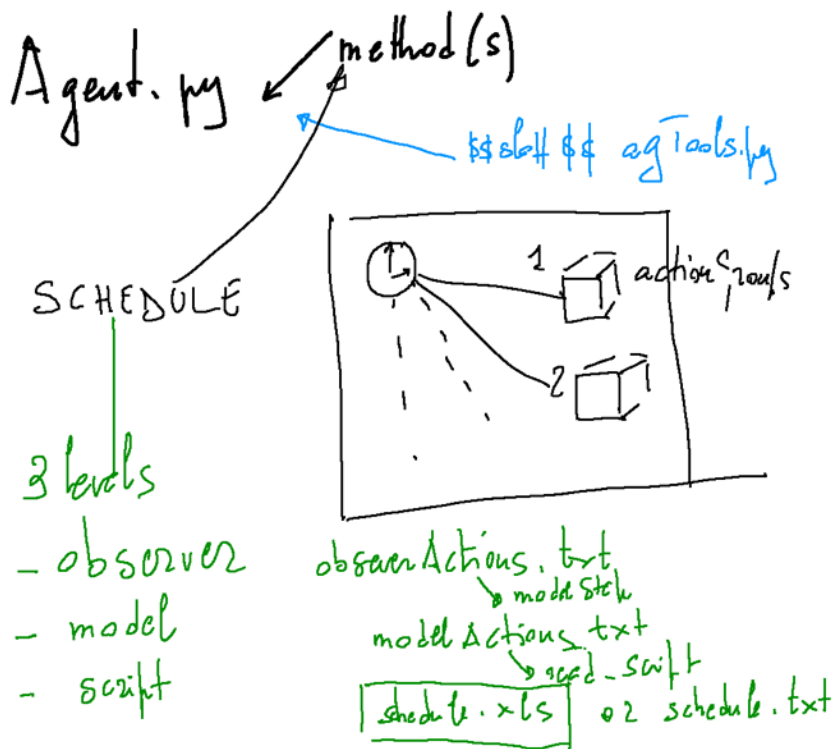 Agent.py
method(s)
$$slapp$$ agTools.py
SCHEDULE
1
actionGroups
2
3 levels
- observer
- model
- script
observerActions.txt
modelStep
modelActions.txt
read_script
schedule.xls
o2 schedule.txt